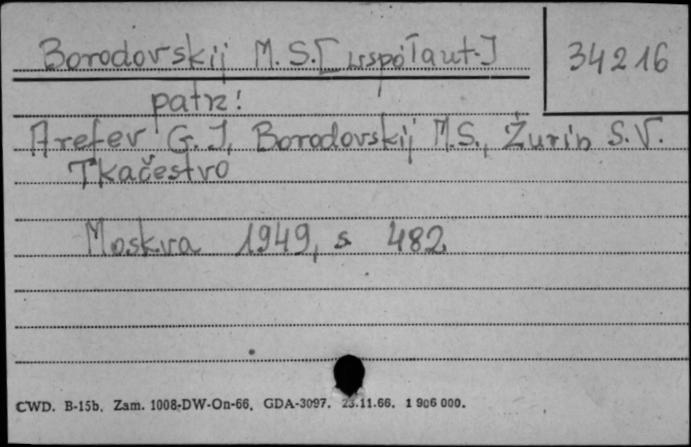 Borodovskij M.S. [współaut.]
34216
patrz!
Arefev G. I, Borodovskij M.S., Žurin S.V.
Tkačestvo
Moskva 1949, s 482.
CWD. B-15b. Zam. 1008-DW-On-66. GDA-3097. 23.11.66. 1 906 000.